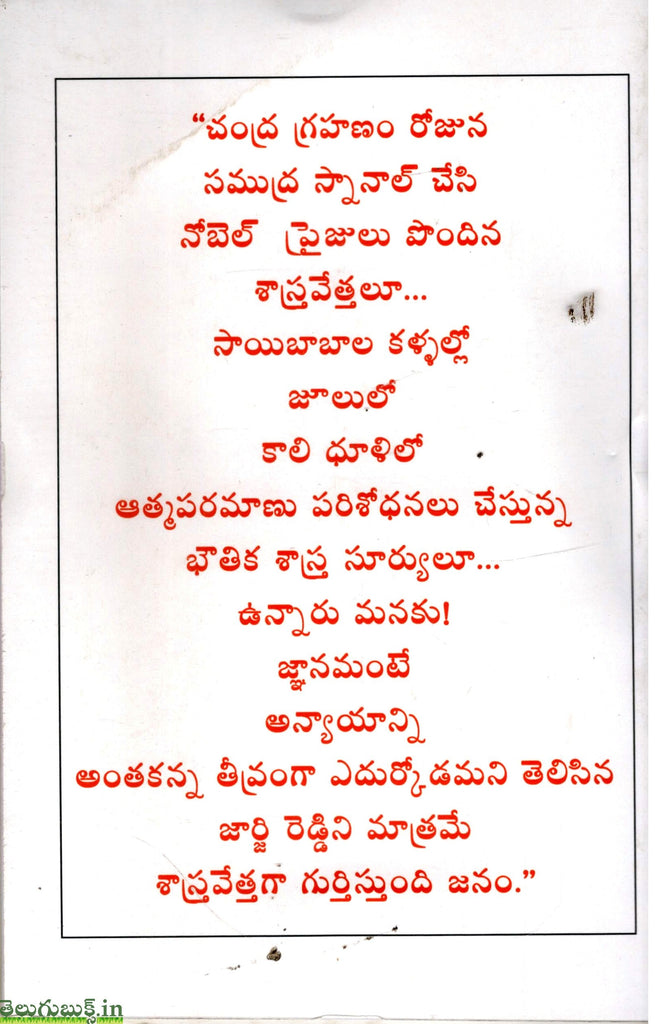 “చంద్ర గ్రహణం రోజున
సముద్ర స్నానాల్ చేసి
నోబెల్ ప్రైజులు పొందిన
శాస్త్రవేత్తలూ...
సాయిబాబాల కళ్ళల్లో
జూలులో
కాలి ధూళిలో
ఆత్మపరమాణు పరిశోధనలు చేస్తున్న
భౌతిక శాస్త్ర సూర్యులూ...
ఉన్నారు మనకు!
జ్ఞానమంటే
అన్యాయాన్ని
అంతకన్న తీవ్రంగా ఎదుర్కోడమని తెలిసిన
జార్జి రెడ్డిని మాత్రమే
శాస్త్రవేత్తగా గుర్తిస్తుంది జనం.”
తెలుగుబుక్స్.in